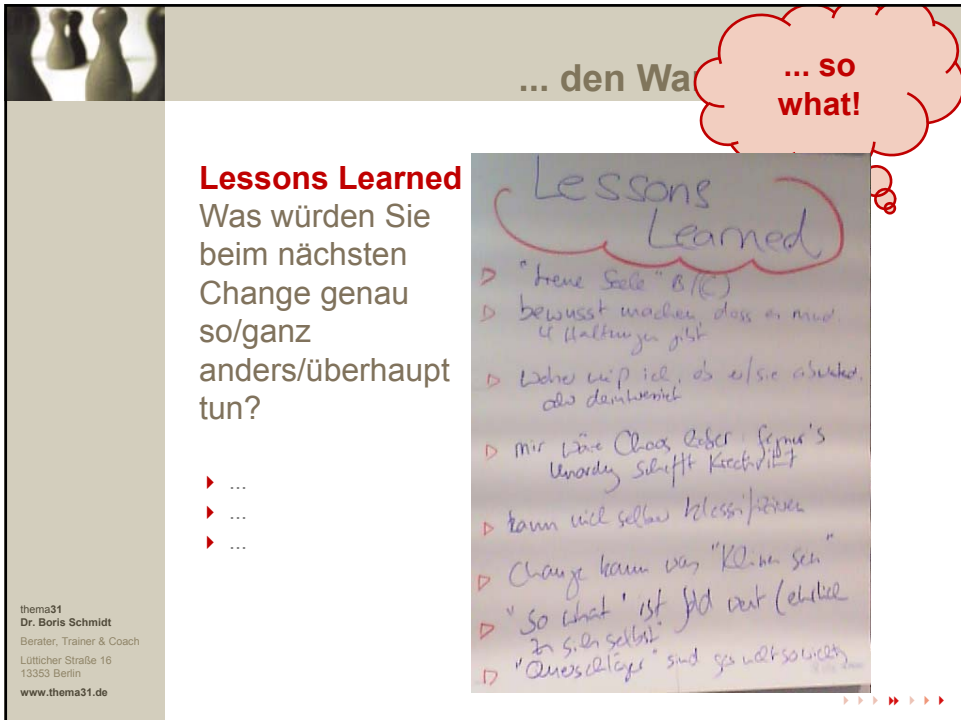 ... den Wa
... so
what!
Lessons Learned
Was würden Sie
beim nächsten
Change genau
so/ganz
anders/überhaupt
tun?
...
...
...
Lessons
Learned
"treue Seele" B/(C)
bewusst machen, dass es mind.
4 Haltungen gibt
Woher weiß ich, ob er/sie
oder
mir wäre Chaos lieber
Unordng schafft Kreativität
kann mich selber klassifizieren
Change kann was "Kleines sein"
"So what" ist Gold wert (ehrlich
zu sich selbst
"Querschläger" sind gar nicht so
thema31
Dr. Boris Schmidt
Berater, Trainer & Coach
Lütticher Straße 16
13353 Berlin
www.thema31.de